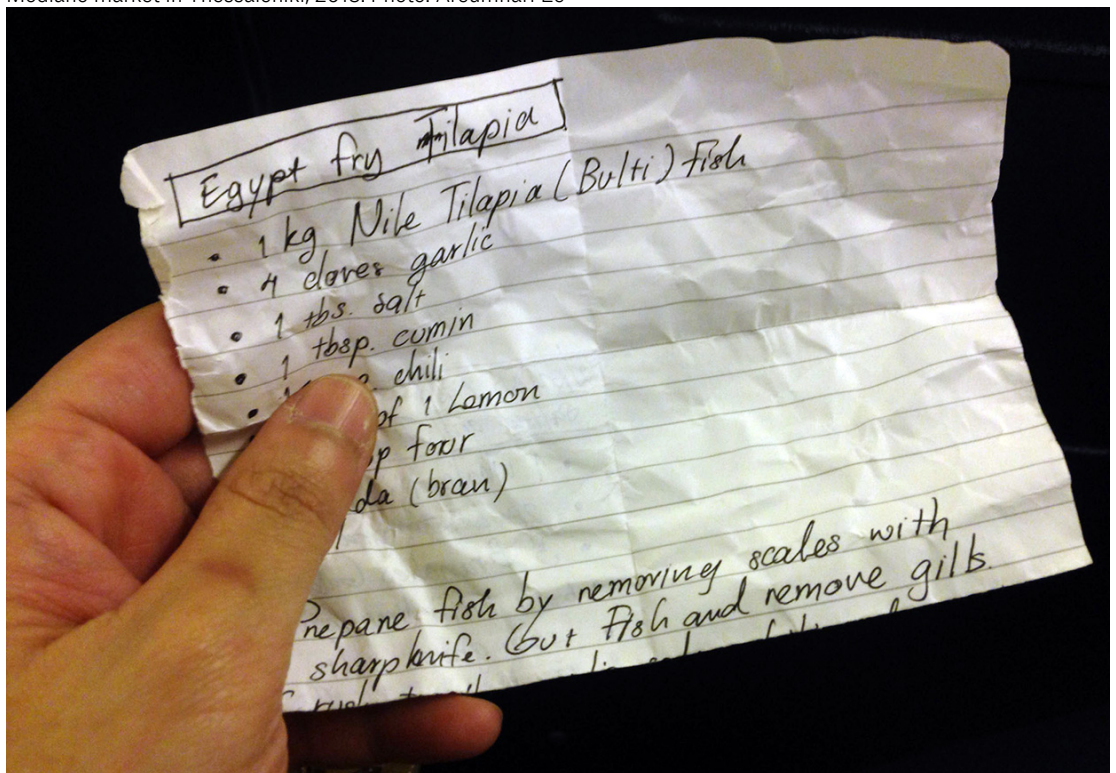 Egypt fry Tilapia
• 1 kg Nile Tilapia (Bulti) fish
• 4 cloves garlic
• 1 tbs. salt
• 1 tbsp. cumin
• chili
of 1 Lemon
(bran)
Prepare fish by removing scales with
sharp knife. Gut fish and remove gills.